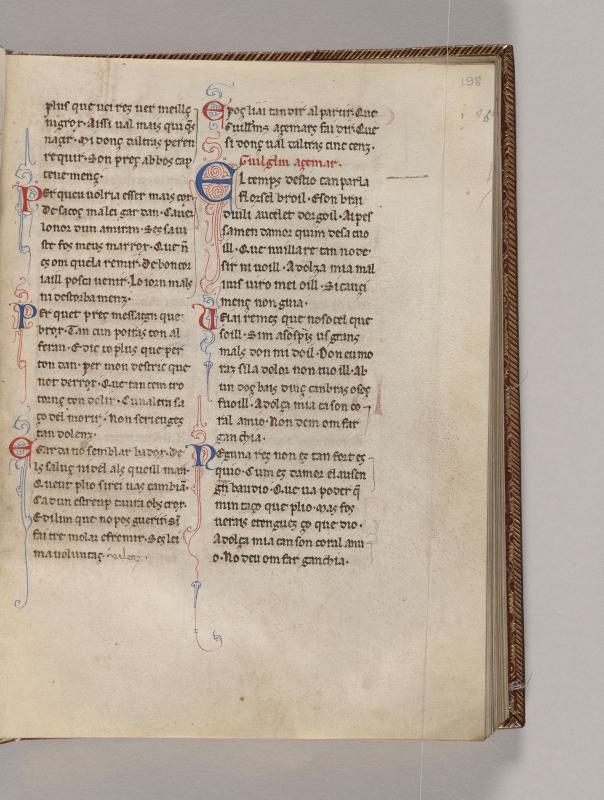 198
plus que uei rez uer meillz
nigror. Aissi ual mais qui qs
nagir. Mi donz caltras peren
requir. Son prez ab bos cap
teue menz.
Per queu uolria esser mais cor
de sacoz malei gar dan. Cauer
lonor dun amiran. Sez saui
ste fos meus marror. Que n
ez om quela remir. de bon cor
iaill posca uenir. Lo iorn mals
ni destorba menz.
Per quet prez messaign que
bror. Tan cun poiras ton al
feran. E dic to plus que per
ton dan. per mon destric que
nor derror. Que tan tem tro
torng ten delir. Cunaltra sa
ço del morir. Non seriengez
tan dolenz.
Esgar da uo semblar bador. de
ls saluz ni del als queill man.
Queut plio sirei uas cambia.
Cadun estreup taura obs cror.
E dilim que no pos guerir. Si
fai tre molar efremir. Sez lei
ma uoluntaz.
Epos liai tan dir al partir. Que
Guillms azemars fai dir. Que
si donz ual caltras cinc cenz.
Guilglm azemar.
El temps destio can par la
flors el broil. E son brai
duili aucelet dorgoil. Ai pes
samen damor quim desa cuo
ill. Que nuillare tan no de
sir ni uoill. A dolza mia mal
ius uiro mei oill. Si cauci
menz non gina.
Veiai remez que nosocel que
soill. Sim asospis us granz
mals don mi doil. Don eu mo
raz si la dolor non tuo ill. Ab
un doz bais dinz cambras osoz
fuoill. A dolza mia ca son co
ral amio. Non dem om far
ganchia.
Neguna rez non ez tan fort ez
quio. Cum ez damor el ausen
gn baudio. Que ua poder q
min taço que plio. Mas fos
uerais etenguez ço que dio.
A dolza mia can son coral ami
o. No deu om far ganchia.